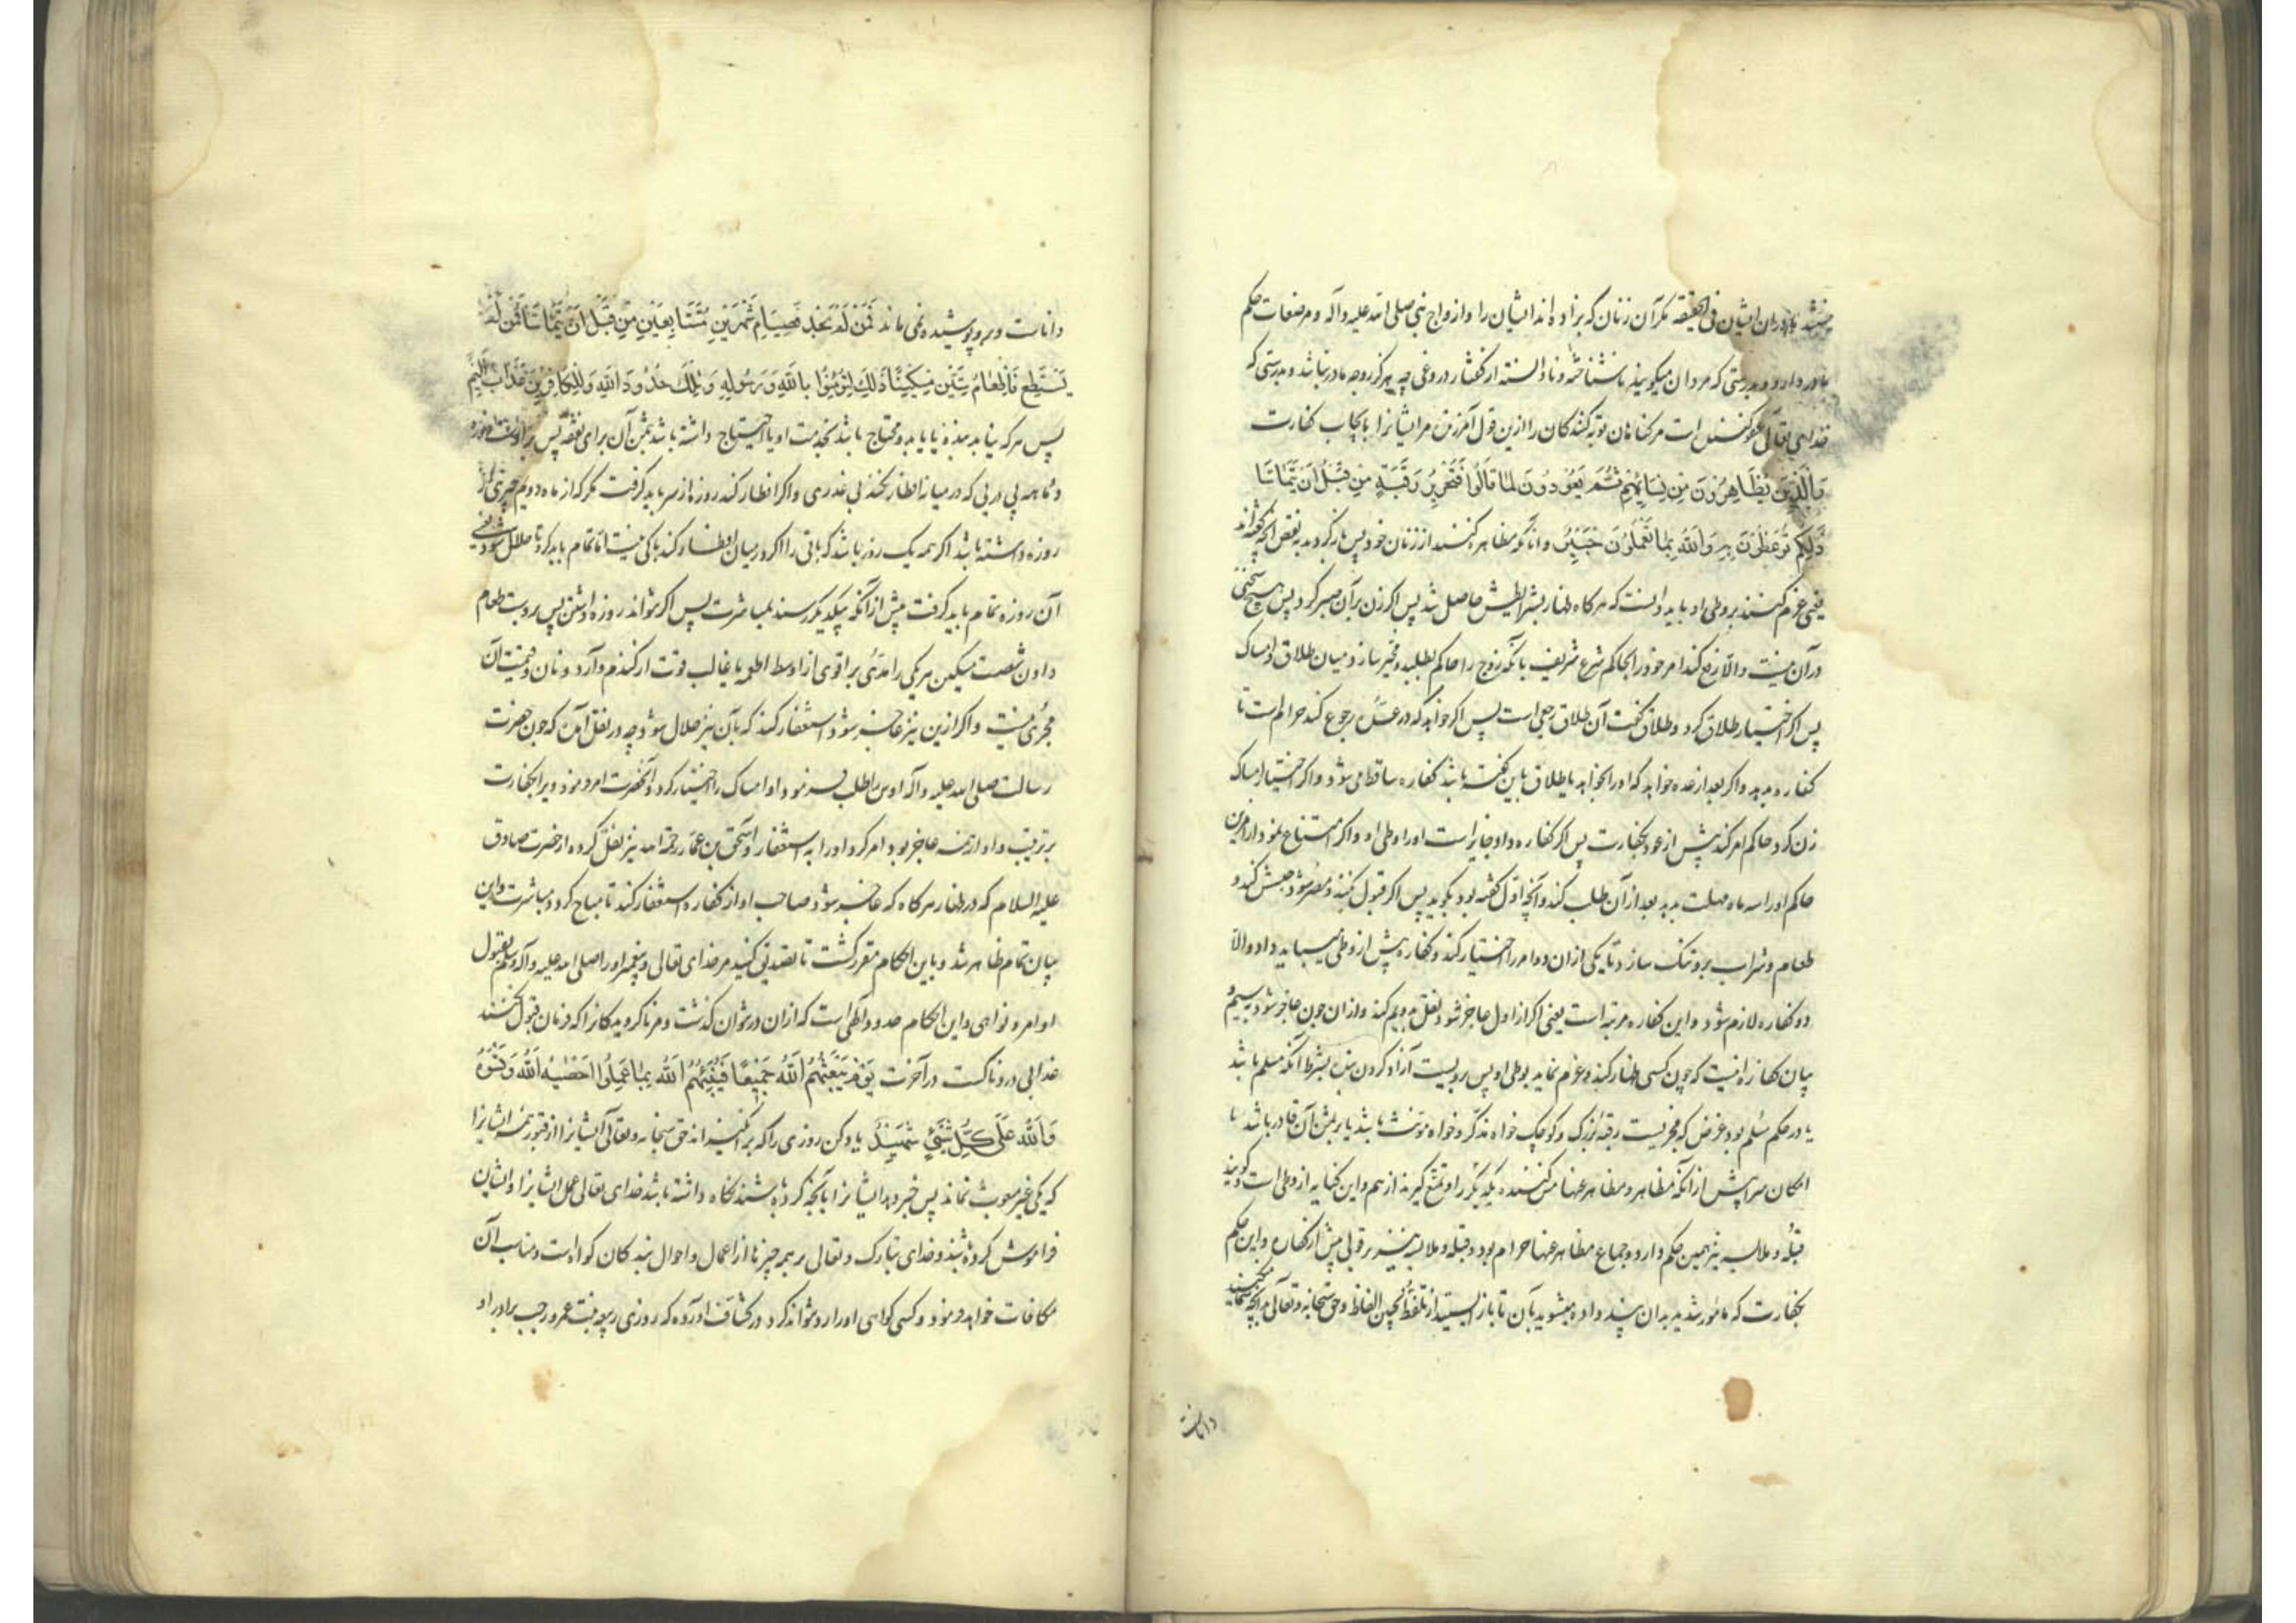 نیستند مادران ایشان فی الحقیقه مگر آن زنان که بزاده‌اند ایشان را و ازواج نبی صلی الله علیه وآله و مرضعات حکم
مادر دارد و بدرستی که مردان میگویند ناشناخته و نادانسته از گفتار دروغی چه هرگز زوجه مادر نباشد و بدرستی که
خدای تعالی عفو کننده است مر گناهان توبه کنندگان را ازین قول آمرزنده مر ایشانرا بایجاب کفارت
وَالَّذِینَ یُظَاهِرُونَ مِن نِسَائِهِم ثُمَّ یَعُودُونَ لِمَا قَالُوا فَتَحْرِیرُ رَقَبَةٍ مِن قَبْلِ اَن یَتَمَاسَّا
ذٰلِکُم تُوعَظُونَ بِهِ وَاللهُ بِمَا تَعْمَلُونَ خَبِیرٌ وانانکه مظاهره کنند از زنان خود پس بازگردند به نقض آنچه گفته‌اند
یعنی عزم کنند بر وطی او باید دانست که هرگاه ظهار بشرایطش حاصل شد پس اگر زن بر آن صبر کرد پس هیچ سخنی
در آن نیست والا رفع کند امر خود را بحاکم شرع شریف بآنکه زوج را حاکم بطلبد و مخیر سازد میان طلاق و امساک
پس اگر اختیار طلاق کرد و طلاق گفت آن طلاق رجعی است پس اگر خواهد که در عده رجوع کند حرام است تا
کفاره بدهد واگر بعد از عده خواهد که او را بخواهد یا طلاق باین گفته باشد کفاره ساقط می‌شود واگر اختیار امساک
زن کرد حاکم امر کند پیش از عود بکفارت پس اگر کفاره داد جایز است او را وطی او واگر امتناع نمود از امرین
حاکم او را سه ماه مهلت بدهد بعد از آن طلب کند و آنچه اول گفته بود بگوید پس اگر قبول نکند و مصر شود حبسش کند و
طعام و شراب برو تنک سازد تا یکی از ان دو امر را اختیار کند و کفاره پیش از وطی میباید داد والا
دو کفاره لازم شود واین کفاره مرتبه است یعنی اگر از اول عاجز شود نقل بدویم کند و از ان چون عاجز شود به سیم
بیان کفاره اینست که چون کسی ظهار کند و عزم نماید بوطی او پس بروست آزاد کردن بنده بشرط آنکه مسلم باشد
یا در حکم مسلم بود غرض که مجزیست رقبهٔ بزرگ و کوچک خواه مذکر و خواه مؤنث باشد یا بر ثمن آن قادر باشد با
امکان شرا پیش از آنکه مظاهر و مظاهر عنها مس کنند یکدیگر را و تمتع گیرند از هم واین کنایه از وطی است و گویند
قبله و ملامسه نیز همین حکم دارد و جماع مظاهر عنها حرام بود و قبله و ملامسه نیز بر قولی پیش از کفاره واین حکم
بکفارت که مامور شدید بدان پند داده میشوید بآن تا باز ایستید از تلفظ بچنین الفاظ وحق سبحانه وتعالی بآنچه میکنید
داناست
داناست و برو پوشیده نمی ماند فَمَن لَمْ یَجِدْ فَصِیَامُ شَهْرَیْنِ مُتَتَابِعَیْنِ مِن قَبْلِ اَن یَتَمَاسَّا فَمَن لَمْ
یَسْتَطِعْ فَاِطْعَامُ سِتِّینَ مِسْکِینًا ذٰلِکَ لِتُؤْمِنُوا بِاللهِ وَرَسُولِهِ وَتِلْکَ حُدُودُ اللهِ وَلِلْکَافِرِینَ عَذَابٌ اَلِیمٌ
پس هر که نیابد بنده یا یابد و محتاج باشد بخدمت او یا احتیاج داشته باشد بثمن آن برای نفقه پس بر اوست روزه
دو ماهه پی در پی که در میانه افطار نکند بی عذری واگر افطار کند روزه از سر باید گرفت مگر که از ماه دویم چیزی را
روزه داشته باشد اگر همه یک روز باشد که باقی را اگر در میان افطار کند باکی نیست اما تمام باید کرد تا حلال شود یعنی
آن روزه تمام باید گرفت پیش از آنکه بیکدیگر رسند بمباشرت پس اگر نتواند روزه داشتن پس بروست طعام
دادن شصت مسکین هر یکی را مدی بر اقوی از اوسط اطعمه یا غالب قوت از گندم و آرد و نان و قیمت آن
مجزی نیست واگر ازین نیز عاجز شود استغفار کند که بآن نیز حلال شود چه در نقل آمده که چون حضرت
رسالت صلی الله علیه وآله اوس را طلب فرمود او امساک را اختیار کرد و آنحضرت امر فرمود ویرا بکفارت
بر ترتیب و او از همه عاجز بود امر کرد او را به استغفار و اسحق بن عمار رحمة الله نیز نقل کرده از حضرت صادق
علیه السلام که در ظهار هرگاه که عاجز شود صاحب او از کفاره استغفار کند تا مباح گردد مباشرت واین
بیان تمام ظاهر شد و باین احکام مقرر گشت تا تصدیق کنید مر خدای تعالی و پیغمبر او را صلی الله علیه وآله وسلم بقبول
اوامر و نواهی واین احکام حدود الهی است که از ان در نتوان گذشت و مر ناگرویدگانرا که فرمان قبول نکنند
عذابی دردناکست در آخرت یَوْمَ یَبْعَثُهُمُ اللهُ جَمِیعًا فَیُنَبِّئُهُمُ اللهُ بِمَا عَمِلُوا اَحْصٰیهُ اللهُ وَنَسُوهُ
وَاللهُ عَلٰی کُلِّ شَیْءٍ شَهِیدٌ یاد کن روزی را که برانگیزاند حق سبحانه وتعالی ایشانرا از قبور همه ایشانرا
که یکی غیر مبعوث نماند پس خبر دهد ایشانرا بآنچه کرده باشند نگاه داشته باشد خدای تعالی عمل ایشانرا و ایشان
فراموش کرده باشند و خدای تبارک و تعالی بر همه چیزها از اعمال و احوال بندگان گواه است و مناسب آن
مکافات خواهد فرمود و کسی گواهی او را رد نتواند کرد در کشاف آورده که روزی ربیعه بنت عمرو رحبب برادر او